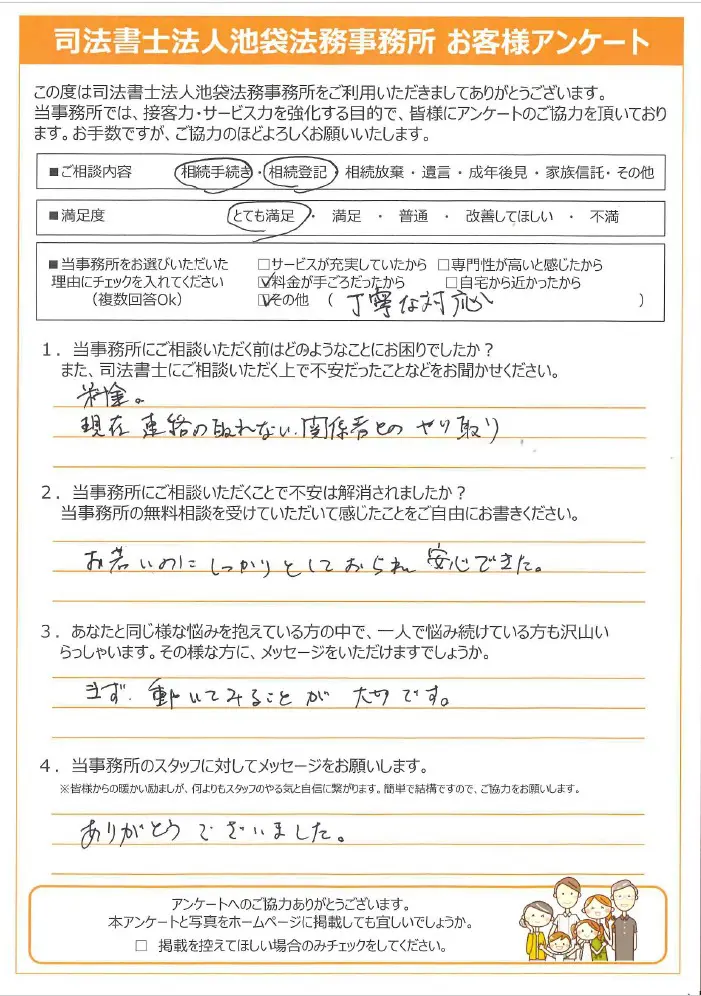 司法書士法人池袋法務事務所 お客様アンケート
この度は司法書士法人池袋法務事務所をご利用いただきましてありがとうございます。
当事務所では、接客力・サービス力を強化する目的で、皆様にアンケートのご協力を頂いており
ます。お手数ですが、ご協力のほどよろしくお願いいたします。
■ご相談内容 相続手続き・相続登記・相続放棄・遺言・成年後見・家族信託・その他
■満足度 とても満足・満足・普通・改善してほしい・不満
■当事務所をお選びいただいた □サービスが充実していたから □専門性が高いと感じたから
理由にチェックを入れてください ☑料金が手ごろだったから □自宅から近かったから
(複数回答Ok) ☑その他 (丁寧な対応)
1.当事務所にご相談いただく前はどのようなことにお困りでしたか?
また、司法書士にご相談いただく上で不安だったことなどをお聞かせください。
料金。
現在 連絡の取れない、関係者とのやり取り
2.当事務所にご相談いただくことで不安は解消されましたか?
当事務所の無料相談を受けていただいて感じたことをご自由にお書きください。
お若いのにしっかりとしておられ安心できた。
3.あなたと同じ様な悩みを抱えている方の中で、一人で悩み続けている方も沢山い
らっしゃいます。その様な方に、メッセージをいただけますでしょうか。
まず、動いてみることが大切です。
4.当事務所のスタッフに対してメッセージをお願いします。
※皆様からの暖かい励ましが、何よりもスタッフのやる気と自信に繋がります。簡単で結構ですので、ご協力をお願いします。
ありがとうございました。
アンケートへのご協力ありがとうございます。
本アンケートと写真をホームページに掲載しても宜しいでしょうか。
□ 掲載を控えてほしい場合のみチェックをしてください。